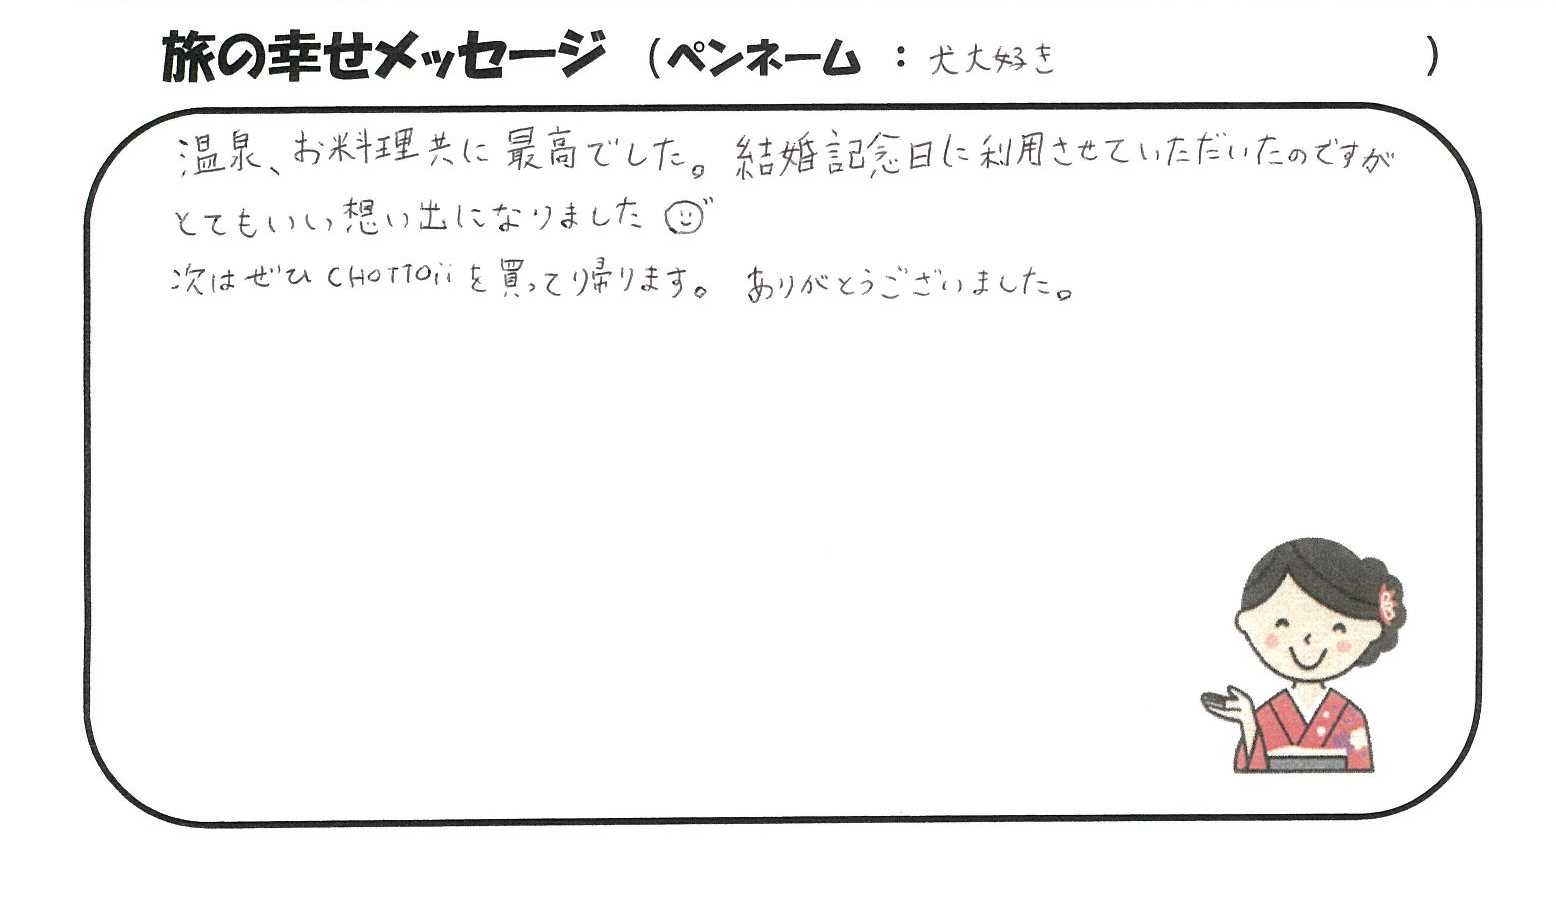 旅の幸せメッセージ （ペンネーム ： 犬大好き ）
温泉、お料理共に最高でした。結婚記念日に利用させていただいたのですが
とてもいい想い出になりました
次はぜひCHOTTOiiを買って帰ります。 ありがとうございました。